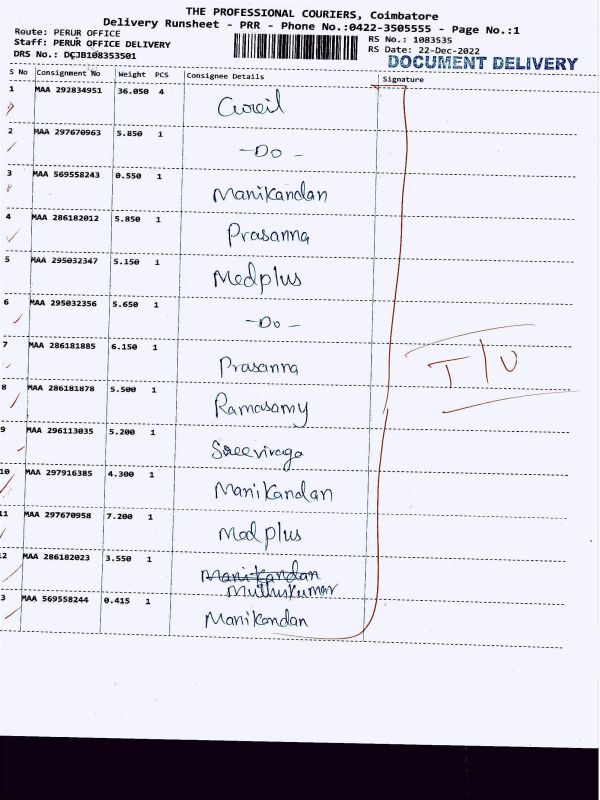 THE PROFESSIONAL COURIERS, Coimbatore
Delivery Runsheet - PRR - Phone No.:0422-3505555 - Page No.:1
Route: PERUR OFFICE
Staff: PERUR OFFICE DELIVERY
DRS No.: DCJB108353501
RS No.: 1083535
RS Date: 22-Dec-2022
DOCUMENT DELIVERY
S No Consignment No Weight PCS Consignee Details Signature
1 MAA 292834951 36.050 4
2 MAA 297670963 5.850 1 -Do-
3 MAA 569558243 0.550 1 Manikandan
4 MAA 286182012 5.850 1 Prasanna
5 MAA 295032347 5.150 1 Medplus
6 MAA 295032356 5.650 1 -Do-
7 MAA 286181885 6.150 1 Prasanna
8 MAA 286181878 5.500 1 Ramasamy
9 MAA 296113035 5.200 1 Sreeviraga
10 MAA 297916385 4.300 1 Manikandan
11 MAA 297670958 7.200 1 Medplus
12 MAA 286182023 3.550 1 Manikandan
Muthukumar
3 MAA 569558244 0.415 1 Manikandan